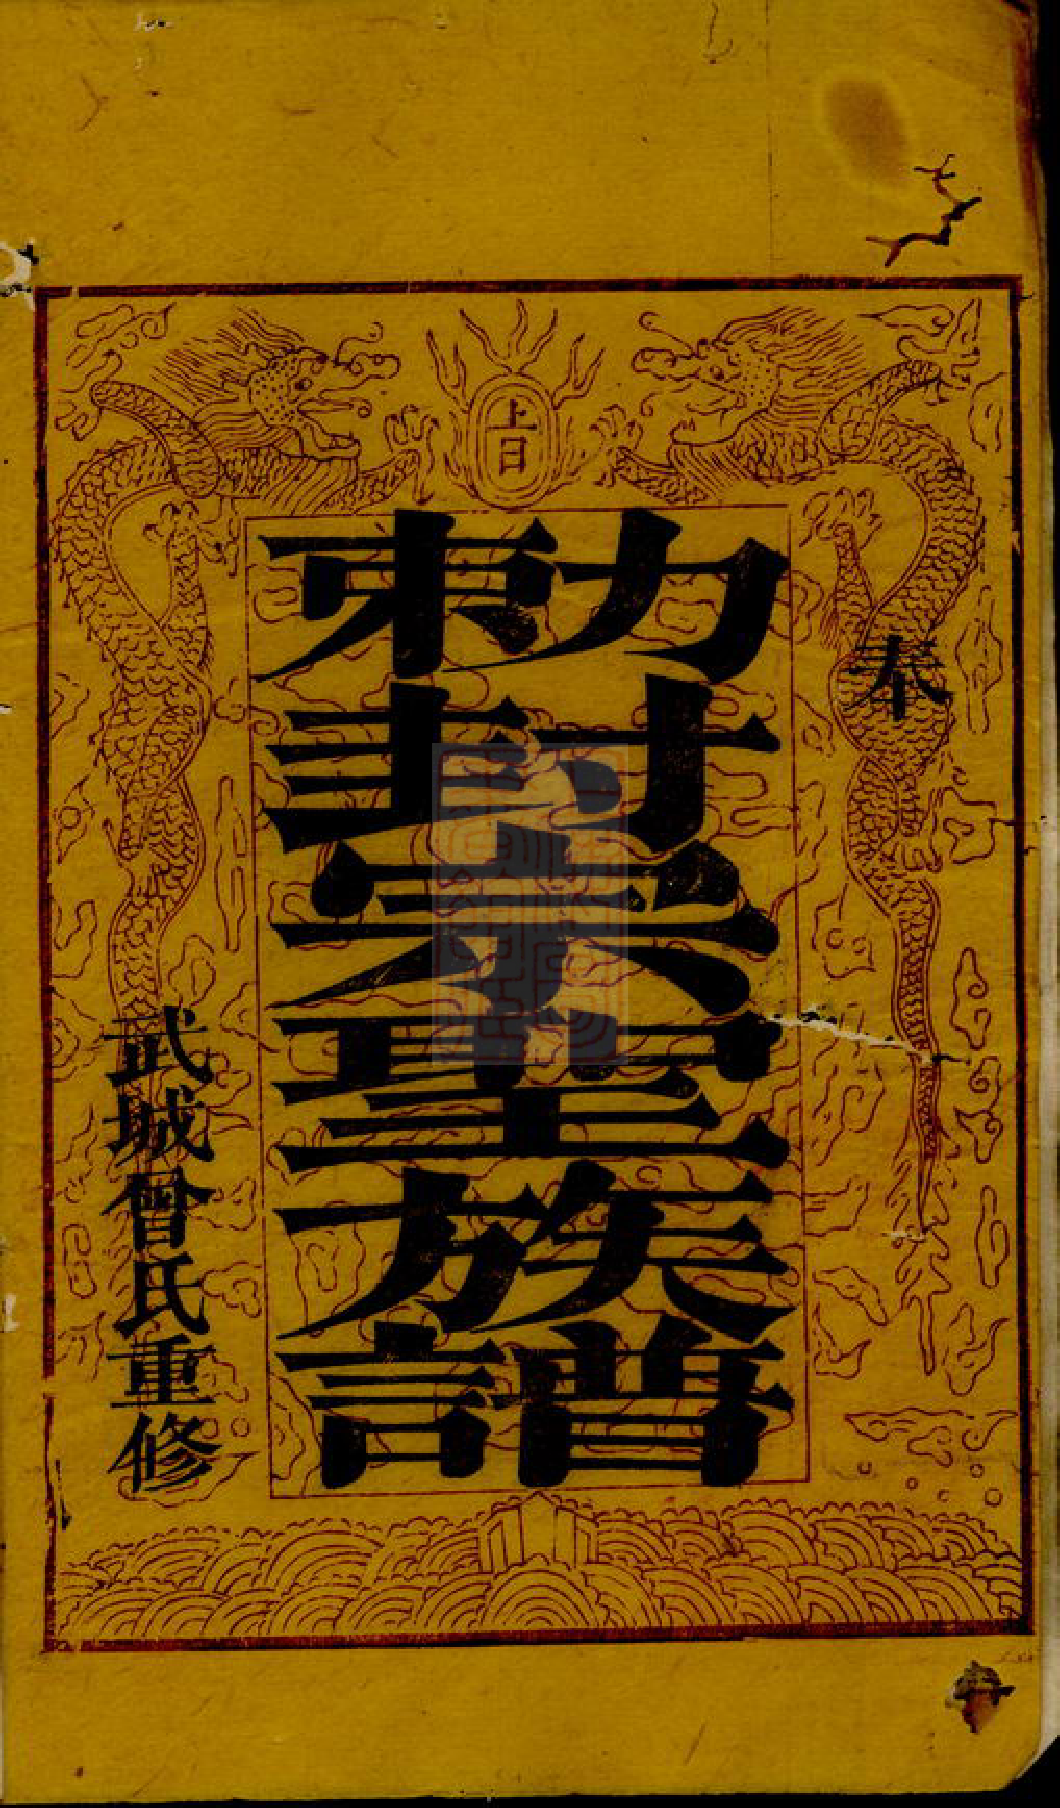 上日
奉
勅封宗聖族譜
武城曾氏重修